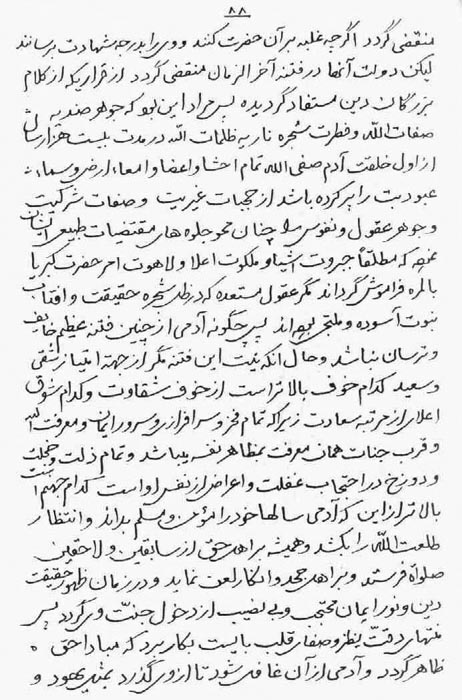 ۸۸
منقضی گردد اگرچه غلبه بر آن حضرت کنند و وی را بدرجه شهادت برسانند
لیکن دولت آنها در فتنه آخر الزمان منقضی گردد از قراریکه از کلام
بزرگان دین مستفاد گردیده پس مراد این بود که جوهر ضدیه
صفات الله و فطرت شجره ناریه ظلمات الله در مدت بیست هزار سال
از اول خلقت آدم صفی الله تمام احشا و اعضا و امعاء ارض و سماء
عبودیت را پر کرده باشد از حجبات غیریت و صفات شرکیت
و جوهر عقول و نفوس را چنان محو جلوه های مقتضیات طبیعی ایشان
نموده که مطلقاً جبروت اشیا و ملکوت اعلا و لاهوت امر حضرت کبریا
بالمره فراموش گرداند مگر عقول مستعده که در ظل شجره حقیقت و افتاب
نبوت آسوده و ملتجی بوده اند پس چگونه آدمی از چنین فتنه عظیم خایف
و ترسان نباشد و حال آنکه نیست این فتنه مگر از جهته امتیاز شقی
و سعید کدام خوف بالاتر است از خوف شقاوت و کدام شوق
اعلای از مرتبه سعادت زیرا که تمام فخر و سرافرازی و سرور ایمان و معرفت الله
و قرب جنات همان معرفت بمظاهر نفسه میباشد و تمام ذلت و خجلت
و دوزخ در احتجاب غفلت و اعراض از نفس او است کدام جهنم است
بالاتر از این که آدمی سالها خود را مؤمن و مسلم بداند و انتظار
طلعت الله را بکشد و همیشه بر اهل حق از سابقین و لاحقین
صلواة فرستد و بر اهل جحد و انکار لعن نماید و در زمان ظهور حقیقت
دین و نور ایمان محتجب و بی نصیب از دخول جنت وی گردد پس
منتهای دقت نظر و صفای قلب بایست بکار برد که مبادا حق
ظاهر گردد و آدمی از آن غافل شود تا از وی گذرد بمثل یهود و